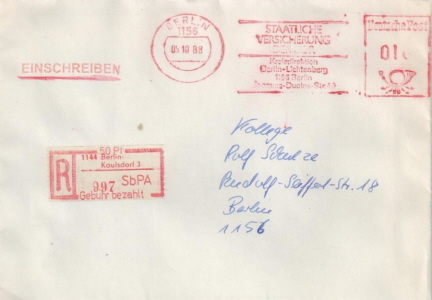 BERLIN
1156
05 10 88
STAATLICHE
VERSICHERUNG
Kreisdirektion
Berlin-Lichtenberg
1156 Berlin
Jacques-Duclos-Str.
Deutsche Post
EINSCHREIBEN
50 Pf
R
1144 Berlin-
Kaulsdorf 3
997 SbPA
Gebühr bezahlt
Kollege
Rolf Schulze
Rudolf-Seiffert-Str. 18
Berlin
1156